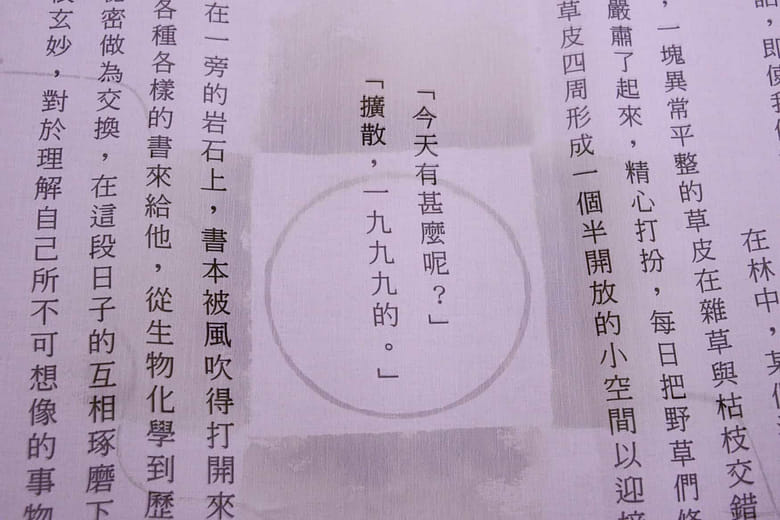 在林中，某
一塊異常平整的草皮在雜草與枯枝交錯
嚴肅了起來，精心打扮，每日把野草們
草皮四周形成一個半開放的小空間以迎
「今天有甚麼呢？」
「擴散，一九九九的。」
在一旁的岩石上，書本被風吹得打開來
各種各樣的書來給他，從生物化學到歷
密做為交換，在這段日子的互相琢磨下
玄妙，對於理解自己所不可想像的事物